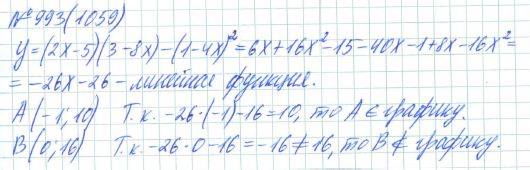 № 993 (1059)
y=(2x-5)(3-8x)-(1-4x)²=6x+16x²-15-40x-1+8x-16x²=
=-26x-26 - линейная функция.
A(-1; 10) Т.к. -26·(-1)-16=10, то A ∈ графику.
B(0; 16) Т.к. -26·0-16=-16≠16, то B ∉ графику.